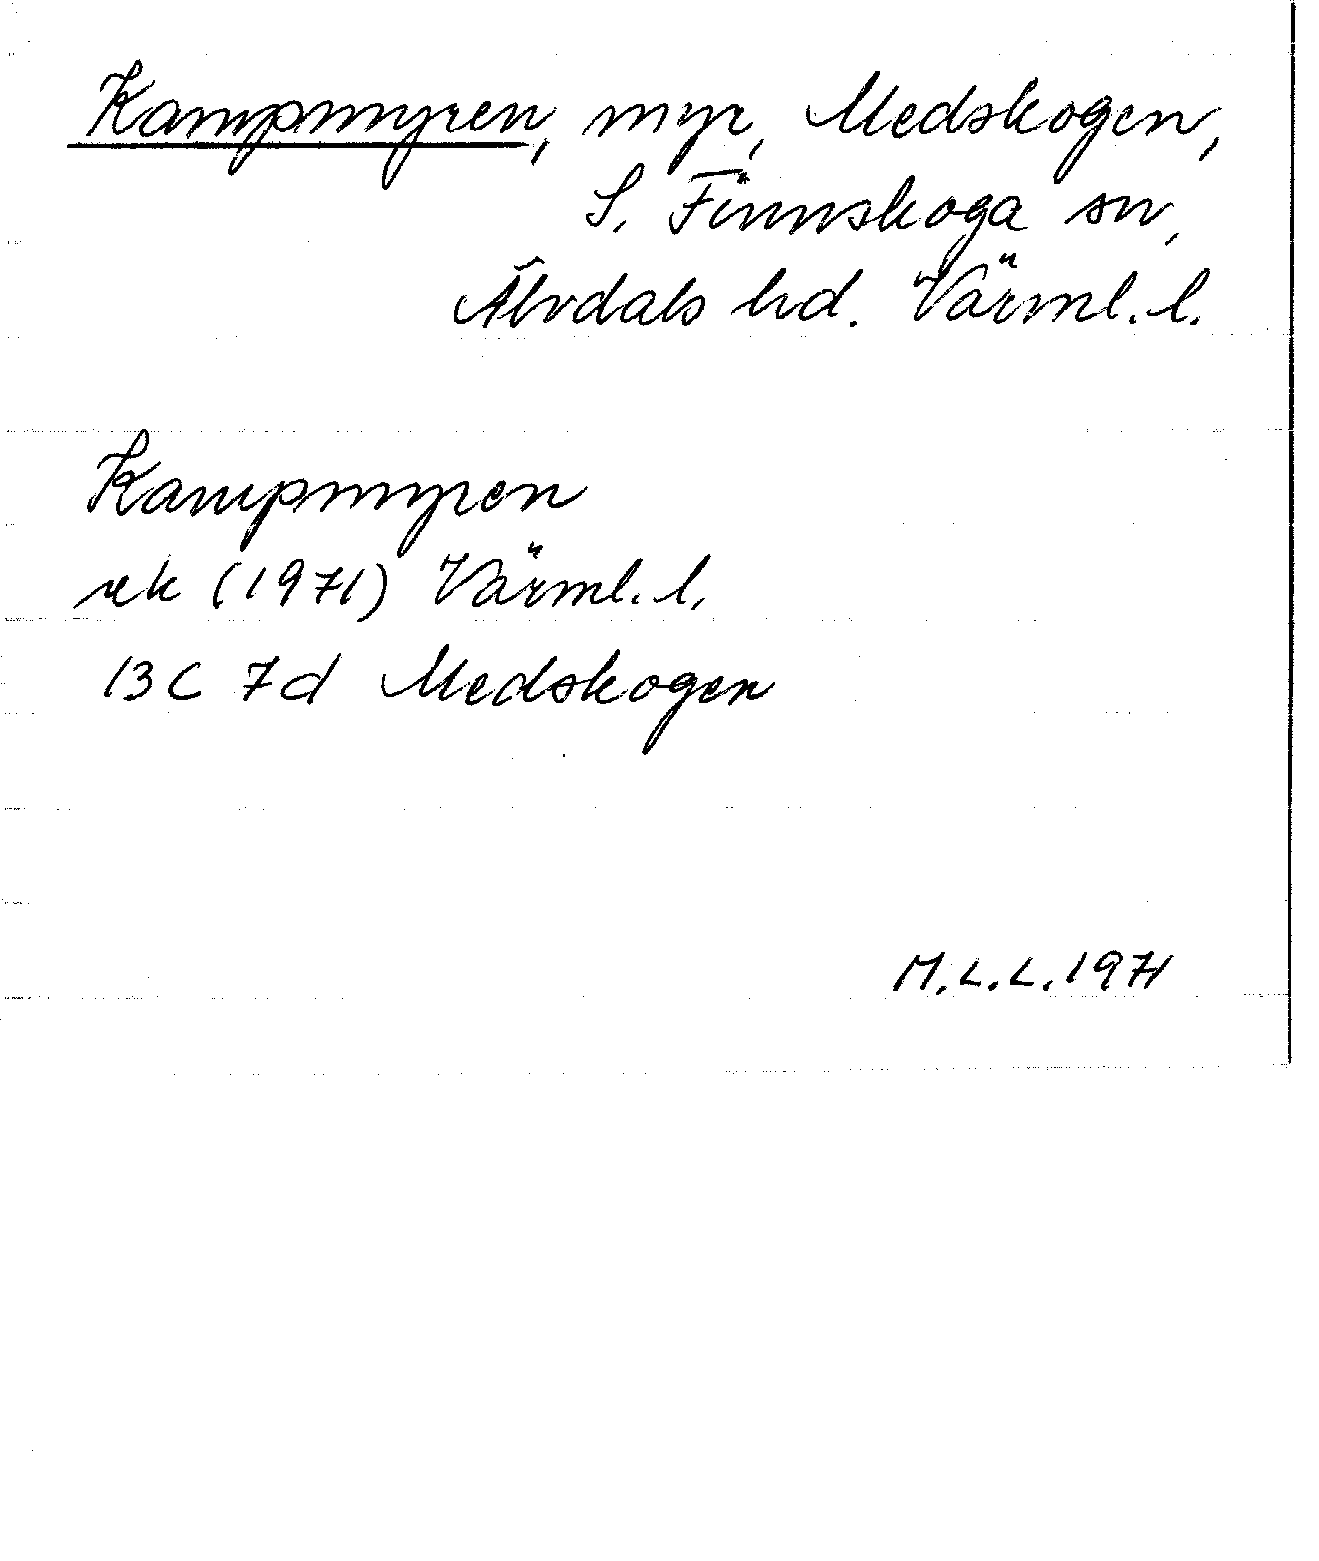 Kampmyren, myr, Medskogen,
S. Finnskoga sn,
Älvdals hd. Värml. l.
Kampmyren
ek (1971) Värml. l.
13C 7d Medskogen
M.L.L. 1971